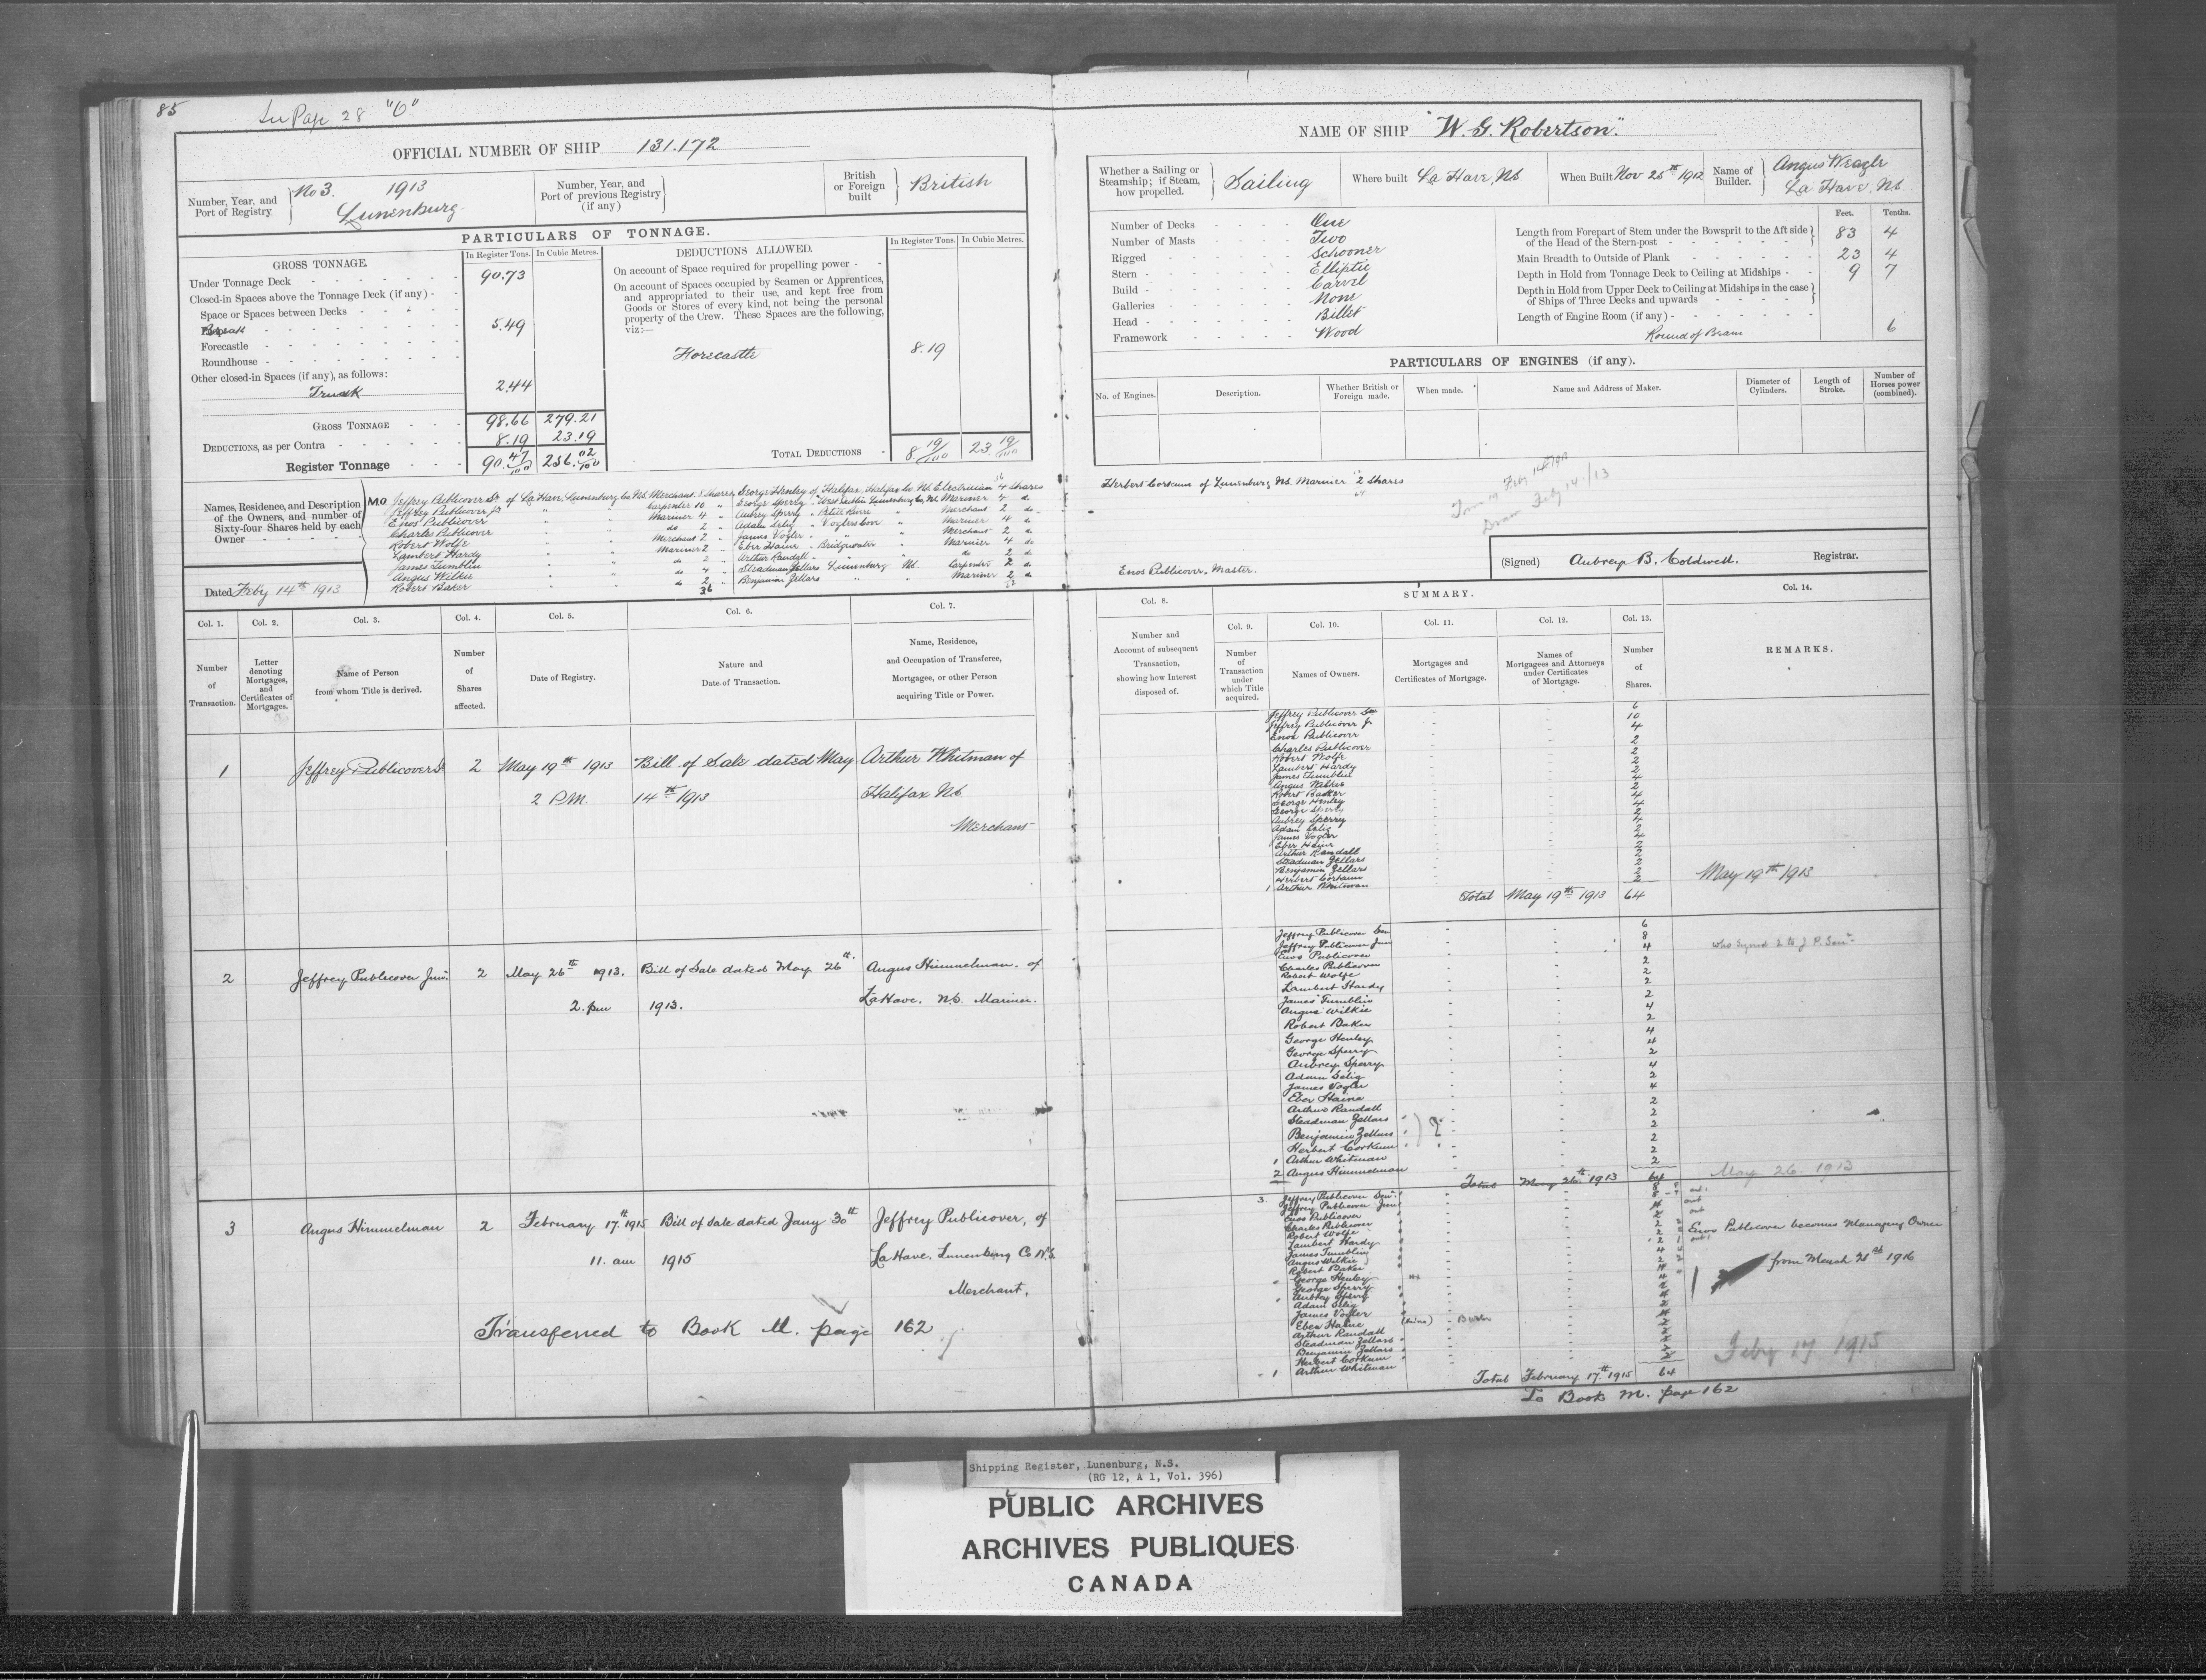 85
Page 28 "O"
OFFICIAL NUMBER OF SHIP 131.172
Number, Year, and Port of Registry No 3. 1913 Lunenburg
Number, Year, and Port of previous Registry (if any)
British or Foreign built British
PARTICULARS OF TONNAGE.
GROSS TONNAGE. In Register Tons. In Cubic Metres.
Under Tonnage Deck 90.73
Closed-in Spaces above the Tonnage Deck (if any) -
Space or Spaces between Decks
Break 5.49
Forecastle
Roundhouse
Other closed-in Spaces (if any), as follows:
Trunk 2.44
GROSS TONNAGE 98.66 279.21
DEDUCTIONS, as per Contra 8.19 23.19
Register Tonnage 90.47/100 256.02/100
DEDUCTIONS ALLOWED. In Register Tons. In Cubic Metres.
On account of Space required for propelling power
On account of Spaces occupied by Seamen or Apprentices, and appropriated to their use, and kept free from Goods or Stores of every kind, not being the personal property of the Crew. These Spaces are the following, viz:—
Forecastle 8.19
TOTAL DEDUCTIONS 8 19/100 23 19/100
Names, Residence, and Description of the Owners, and number of Sixty-four Shares held by each Owner
M.O. Jeffrey Publicover Sr of La Have, Lunenburg Co NS. Merchant 8 Shares
Jeffrey Publicover Jr " " Carpenter 10 "
Enos Publicover " " Mariner 4 "
Charles Publicover " " do 2 "
Robert Wolfe " " Merchant 2 "
Lambert Hardy " " Mariner 2 "
James Tumblin " " do 2 "
Angus Wilkie " " do 4 "
Robert Baker " " do 2 "
36
George Henley of Halifax, Halifax Co. NS. Electrician 4 Shares
George Sperry " West Dublin Lunenburg Co, NS Mariner 4 do
Aubrey Sperry " Petite Riviere " Merchant 2 do
Adam Selig " Voglers Cove " Mariner 4 do
James Vogler " " Merchant 2 do
Eber Haine " Bridgewater " Mariner 4 do
Arthur Randall " " do 2 do
Steadman Zellars Lunenburg NS. Carpenter 2 do
Benjamin Zellars " " Mariner 2 do
Dated Feby 14th 1913
NAME OF SHIP "W. G. Robertson."
Whether a Sailing or Steamship; if Steam, how propelled. Sailing
Where built La Have, NS
When Built Nov 25th 1912
Name of Builder. Angus Weagle La Have, NS.
Number of Decks One
Number of Masts Two
Rigged Schooner
Stern Elliptic
Build Carvel
Galleries None
Head Billet
Framework Wood
Feet. Tenths.
Length from Forepart of Stem under the Bowsprit to the Aft side of the Head of the Stern-post 83 4
Main Breadth to Outside of Plank 23 4
Depth in Hold from Tonnage Deck to Ceiling at Midships 9 7
Depth in Hold from Upper Deck to Ceiling at Midships in the case of Ships of Three Decks and upwards
Length of Engine Room (if any)
Round of Beam 6
PARTICULARS OF ENGINES (if any).
No. of Engines. Description. Whether British or Foreign made. When made. Name and Address of Maker. Diameter of Cylinders. Length of Stroke. Number of Horses power (combined).
Herbert Corkum of Lunenburg NS. Mariner 2 Shares
64
Feby 14/13
Enos Publicover, Master.
(Signed) Aubrey B. Coldwell. Registrar.
Col. 1. Col. 2. Col. 3. Col. 4. Col. 5. Col. 6. Col. 7.
Number of Transaction.
Letter denoting Mortgages, and Certificates of Mortgages.
Name of Person from whom Title is derived.
Number of Shares affected.
Date of Registry.
Nature and Date of Transaction.
Name, Residence, and Occupation of Transferee, Mortgagee, or other Person acquiring Title or Power.
SUMMARY.
Col. 8. Col. 9. Col. 10. Col. 11. Col. 12. Col. 13. Col. 14.
Number and Account of subsequent Transaction, showing how Interest disposed of.
Number of Transaction under which Title acquired.
Names of Owners.
Mortgages and Certificates of Mortgage.
Names of Mortgagees and Attorneys under Certificates of Mortgage.
Number of Shares.
REMARKS.
1 Jeffrey Publicover Sr 2 May 19th 1913 Bill of Sale dated May Arthur Whitman of
2 P.M. 14th 1913 Halifax NS.
Merchant
Jeffrey Publicover Sen 6
Jeffrey Publicover Jr 10
Enos Publicover 4
Charles Publicover 2
Robert Wolfe 2
Lambert Hardy 2
James Tumblin 2
Angus Wilkie 4
Robert Baker 2
George Henley 4
George Sperry 4
Aubrey Sperry 2
Adam Selig 4
James Vogler 2
Eber Haine 4
Arthur Randall 2
Steadman Zellars 2
Benjamin Zellars 2
Herbert Corkum 2
1 Arthur Whitman 2
Total May 19th 1913 64
May 19th 1913
2 Jeffrey Publicover Junr. 2 May 26th 1913. Bill of Sale dated May 26th Angus Himmelman. of
2. pm 1913. LaHave. NS. Mariner.
Jeffrey Publicover Sen 6
Jeffrey Publicover Jun 8
Enos Publicover 4
Charles Publicover 2
Robert Wolfe 2
Lambert Hardy 2
James Tumblin 2
Angus Wilkie 4
Robert Baker 2
George Henley 4
George Sperry 4
Aubrey Sperry 2
Adam Selig 4
James Vogler 2
Eber Haine 4
Arthur Randall 2
Steadman Zellars 2
Benjamin Zellars 2
Herbert Corkum 2
1 Arthur Whitman 2
2 Angus Himmelman 2
Total May 26th 1913 64
May 26. 1913
3 Angus Himmelman 2 February 17th 1915 Bill of Sale dated Jany 30th Jeffrey Publicover, of
11. am 1915 LaHave. Lunenburg Co N.S.
Merchant.
Transferred to Book M. page 162
3. Jeffrey Publicover Senr. 8
Jeffrey Publicover Junr 8
Enos Publicover
Charles Publicover
Robert Wolfe
Lambert Hardy
James Tumblin
Angus Wilkie
Robert Baker
George Henley
George Sperry
Aubrey Sperry
Adam Selig
James Vogler
Eber Haine
Arthur Randall
Steadman Zellars
Benjamin Zellars
Herbert Corkum
1 Arthur Whitman
Total February 17th 1915 64
Enos Publicover becomes Managing Owner
from March 1916
Feby 17 1915
To Book M. page 162
Shipping Register, Lunenburg, N.S.
(RG 12, A 1, Vol. 396)
PUBLIC ARCHIVES
ARCHIVES PUBLIQUES
CANADA